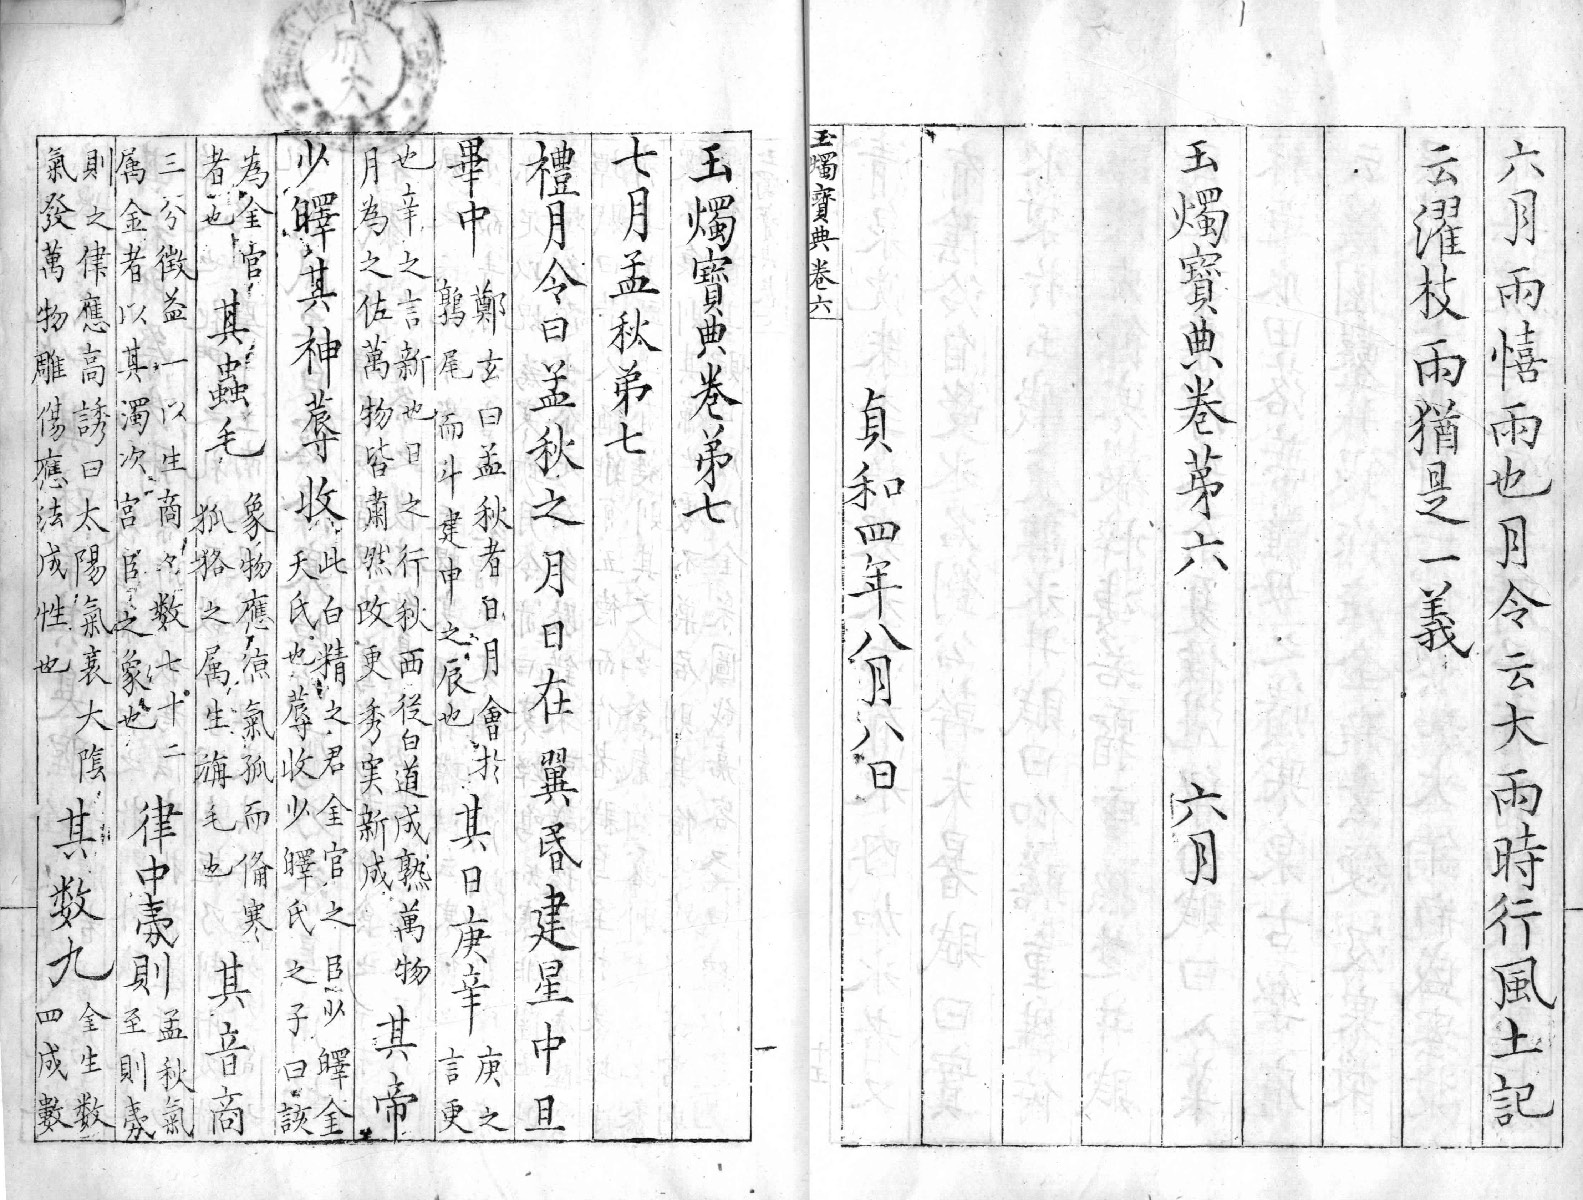 六月雨憘雨也月令云大雨時行風土記
云濯枝雨猶是一義
玉燭寶典卷苐六 六月
貞和四年八月八日
玉燭寶典卷六
玉燭寶典卷苐七
七月孟秋苐七
禮月令曰孟秋之月日在翼昏建星中旦
畢中
鄭玄曰孟秋者日月會於
鶉尾而斗建申之辰也
其日庚辛
庚之
言更
也辛之言新也日之行秋西從白道成熟萬物
月為之佐萬物皆肅然改更秀実新成
其帝
少皞其神蓐收
此白精之君金官之臣少皞金
天氏也蓐收少皞氏之子曰該
為金官
者也
其蟲毛
象物應凉氣孤而俻寒
狐狢之属生旃毛也
其音商
三分徴益一以生商々数七十二
属金者以其濁次宮臣之象也
律中夷則
孟秋氣
至則夷
則之律應高誘曰太陽氣衰大陰
氣發萬物雕傷應法成性也
其数九
金生数
四成數